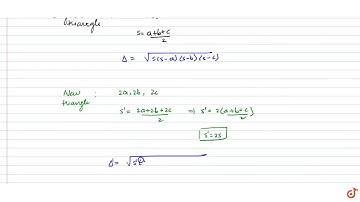 triangle
s = a+b+c / 2
Δ = √s(s-a)(s-b)(s-c)
New triangle : 2a, 2b, 2c
s' = 2a+2b+2c / 2 ⇒ s' = 2(a+b+c / 2)
s' = 2s